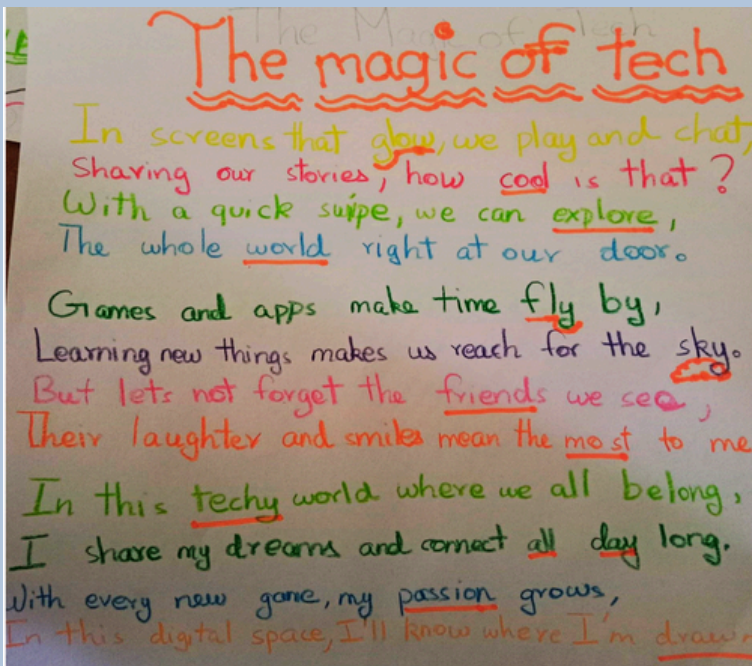 The Magic of Tech
The magic of tech
In screens that glow, we play and chat,
Sharing our stories, how cool is that?
With a quick swipe, we can explore,
The whole world right at our door.
Games and apps make time fly by,
Learning new things makes us reach for the sky.
But lets not forget the friends we see,
Their laughter and smiles mean the most to me
In this techy world where we all belong,
I share my dreams and connect all day long.
With every new game, my passion grows,
In this digital space, I'll know where I'm drawn